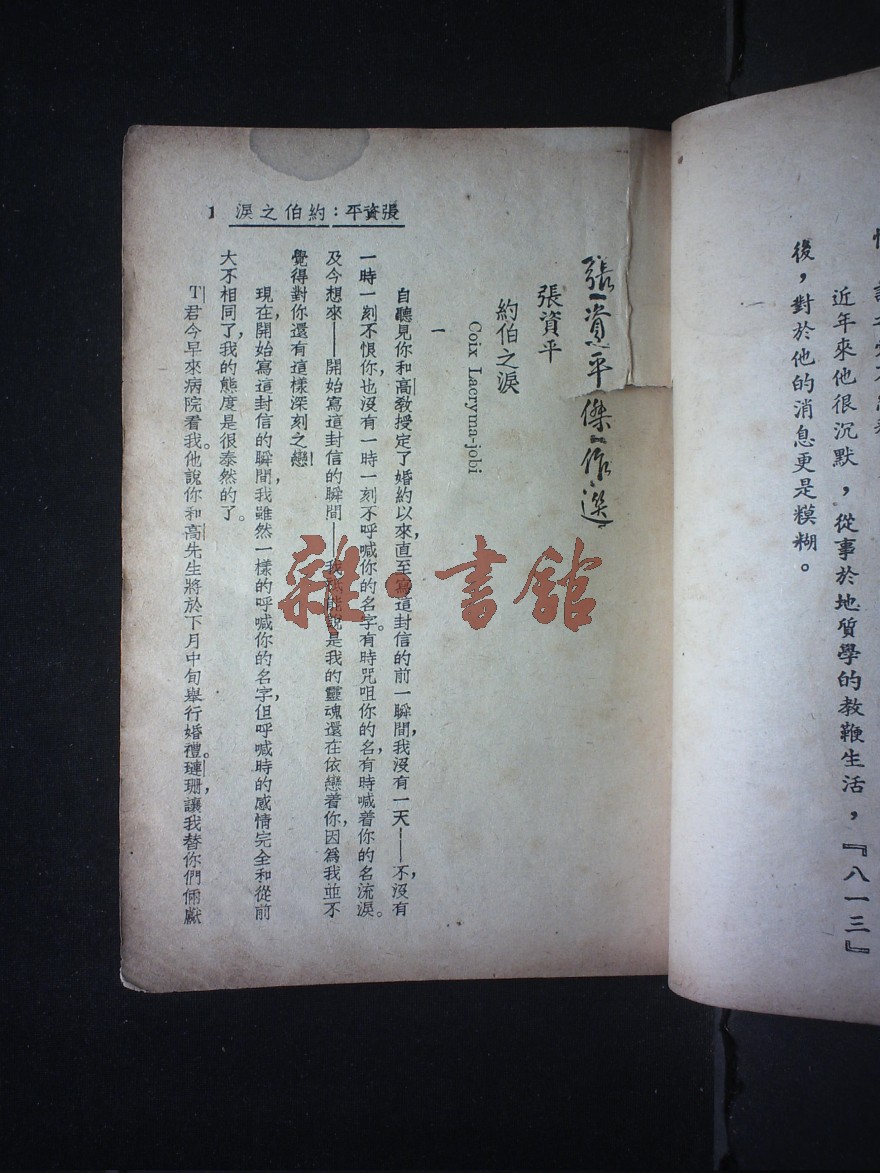 後，對於他的消息更是糢糊。
近年來他很沉默，從事於地質學的教鞭生活，『八一三』
張資平：約伯之淚 1
張資平傑作選
張資平
約伯之淚
Coix Lacryma-jobi
一
自聽見你和高教授定了婚約以來，直至寫這封信的前一瞬間，我沒有一天——不，沒有
一時一刻不恨你，也沒有一時一刻不呼喊你的名字。有時咒咀你的名，有時喊着你的名流淚。
及今想來——開始寫這封信的瞬間——我祇能說是我的靈魂還在依戀着你，因爲我並不
覺得對你還有這樣深刻之戀！
現在，開始寫這封信的瞬間，我雖然一樣的呼喊你的名字，但呼喊時的感情完全和從前
大不相同了，我的態度是很泰然的了。
T君今早來病院看我。他說你和高先生將於下月中旬舉行婚禮。璉珊，讓我替你們倆獻
雜·書館